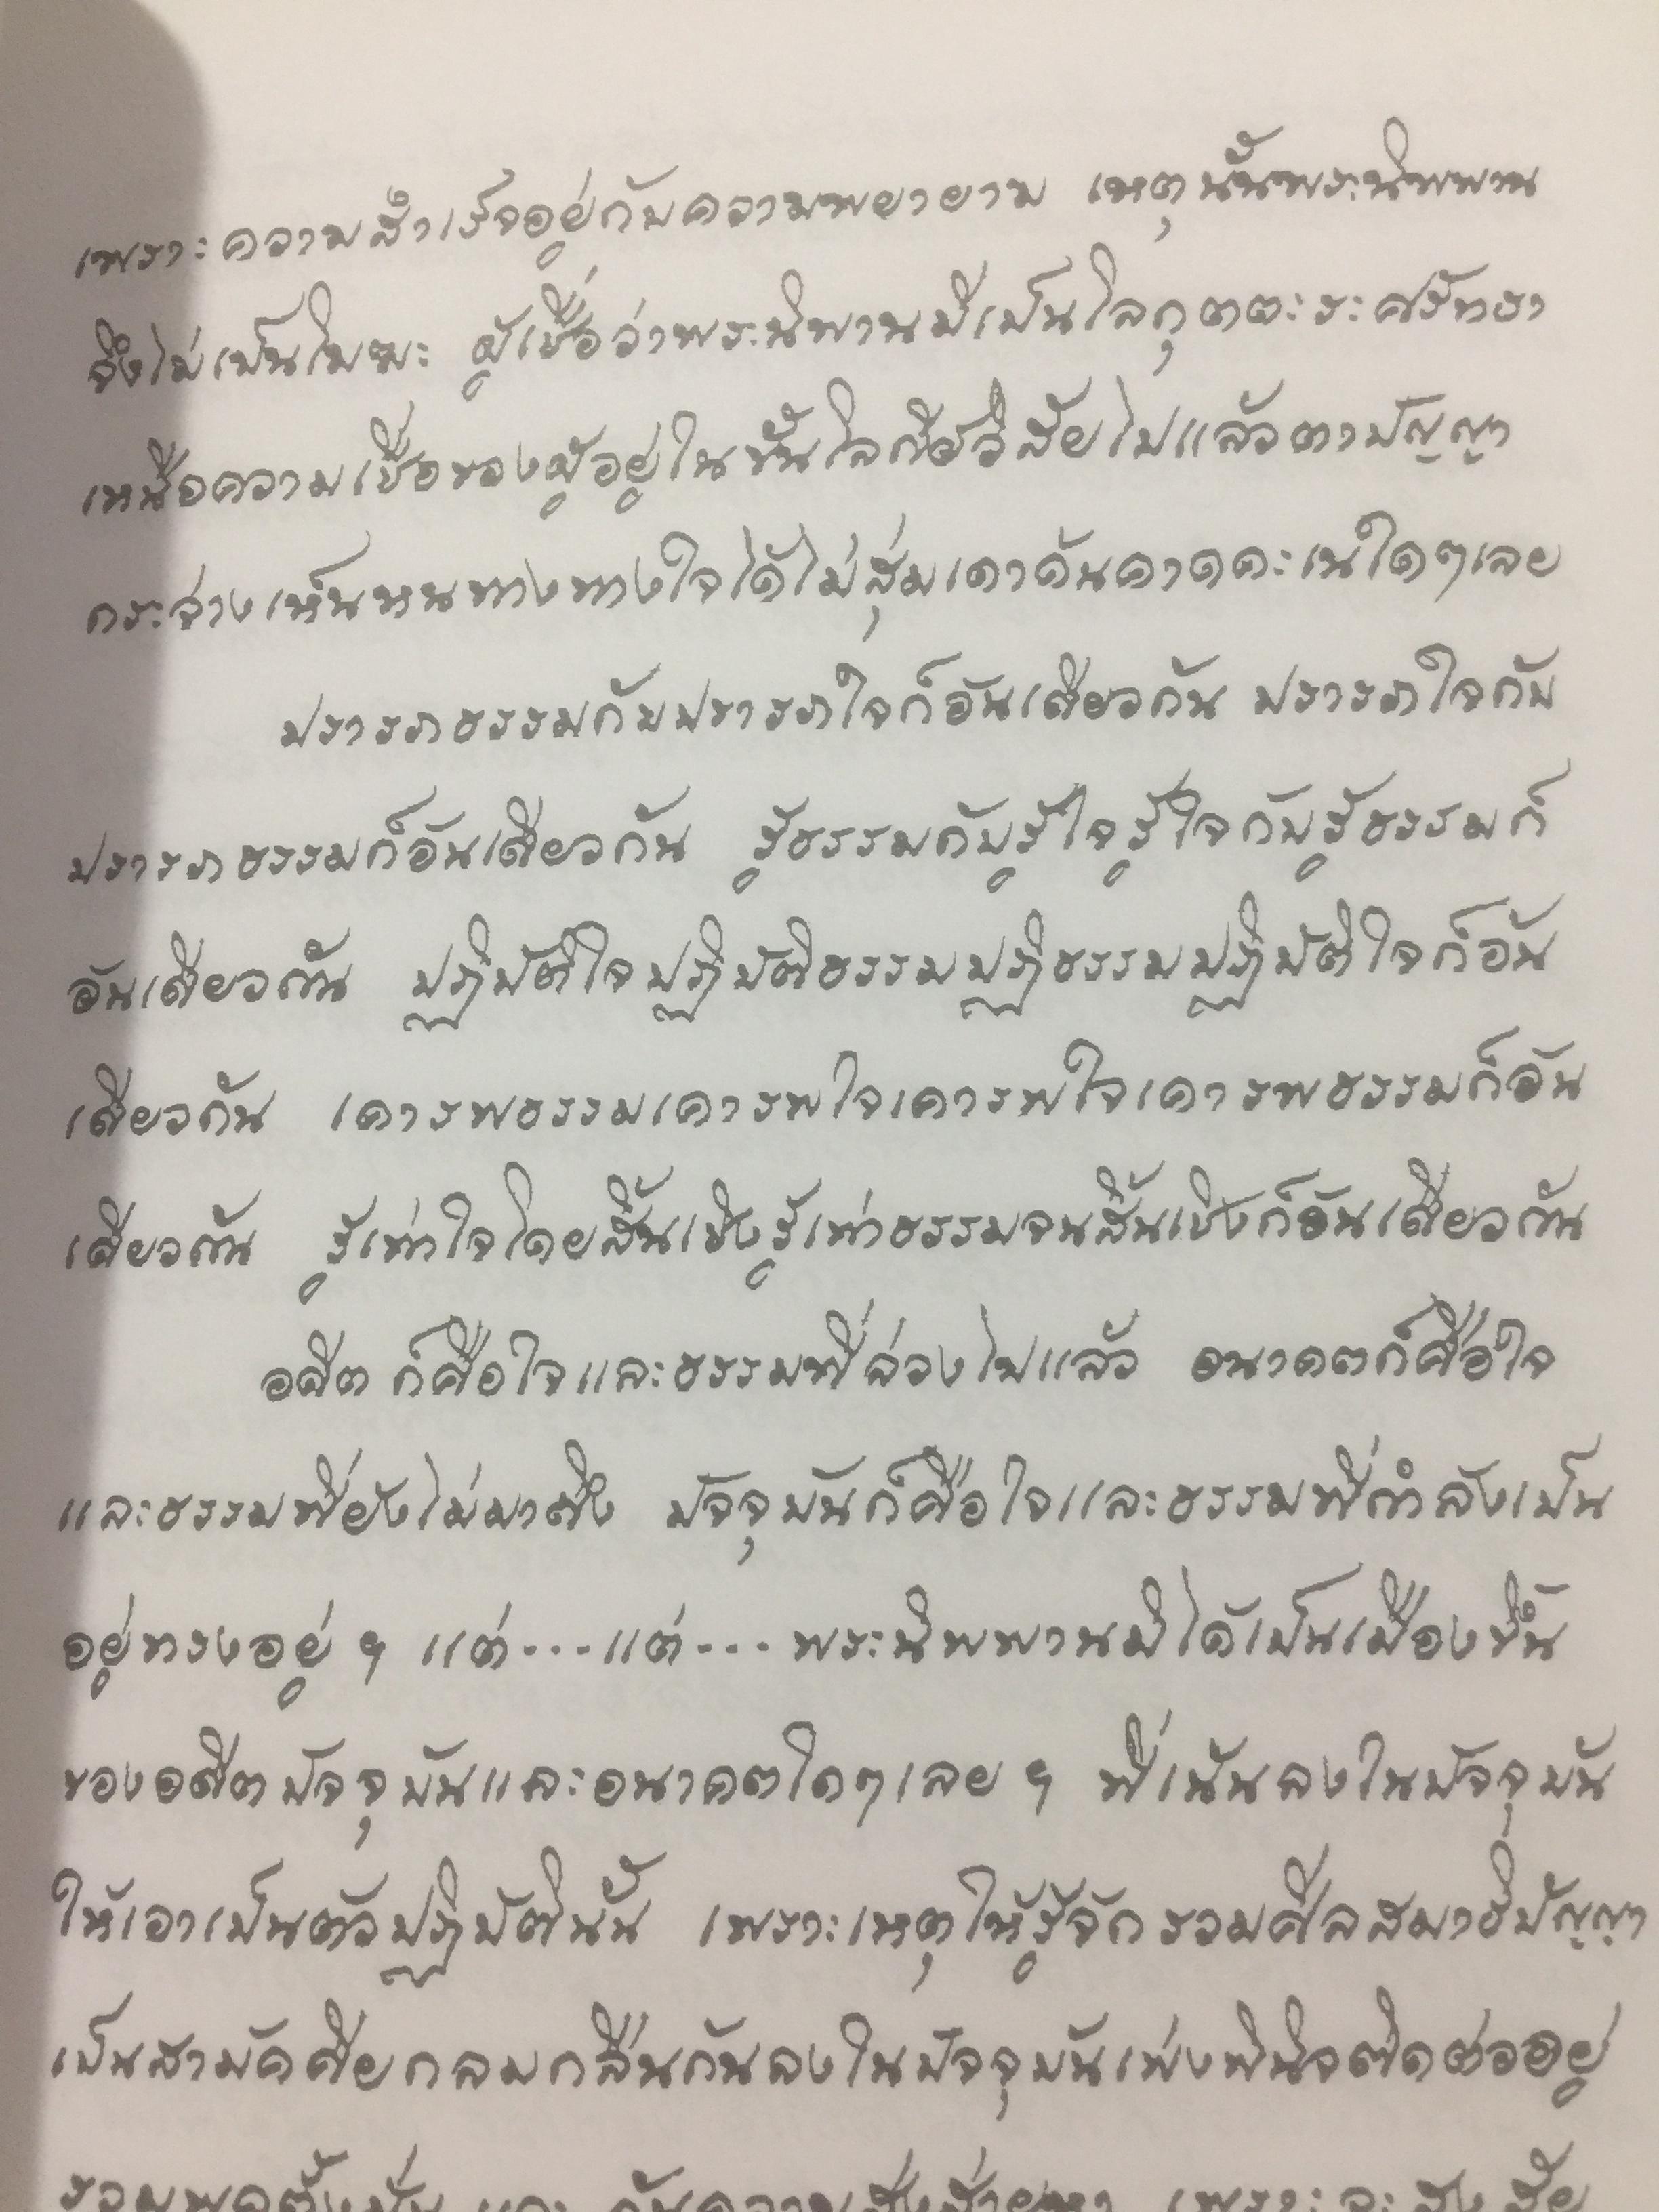 เพราะความสำเร็จอยู่กับความพยายาม เหตุนั้นพระนิพพาน
จึงไม่เป็นโมฆะ ผู้เชื่อว่าพระนิพานมีเป็นโลกุตตะระศรัทธา
เหนือความเชื่อของผู้อยู่ในชั้นโลกีย์วิสัยไปแล้วตาปัญญา
กระจ่างเห็นหนทางทางใจได้ไม่สุ่มเดาด้นคาดคะเนใดๆเลย
ปรารภธรรมกับปรารภใจก็อันเดียวกัน ปรารภใจกับ
ปรารภธรรมก็อันเดียวกัน รู้ธรรมกับรู้ใจรู้ใจกับรู้ธรรมก็
อันเดียวกัน ปฏิบัติใจปฏิบัติธรรมปฏิธรรมปฏิบัติใจก็อัน
เดียวกัน เคารพธรรมเคารพใจเคารพใจเคารพธรรมก็อัน
เดียวกัน รู้เท่าใจโดยสิ้นเชิงรู้เท่าธรรมจนสิ้นเชิงก็อันเดียวกัน
อดีต ก็คือใจและธรรมที่ล่วงไปแล้ว อนาคตก็คือใจ
และธรรมที่ยังไม่มาถึง ปัจจุบันก็คือใจและธรรมที่กำลังเป็น
อยู่ทรงอยู่ ฯ แต่...แต่... พระนิพพานมิได้เป็นเมืองขึ้น
ของอดีตปัจจุบันและอนาคตใดๆเลย ฯ ที่เน้นลงในปัจจุบัน
ให้เอาเป็นตัวปฏิบัตินั้น เพราะเหตุให้รู้จักรวมศีลสมาธิปัญญา
เป็นสามัคคียกลมกลืนกันลงในปัจจุบันเพ่งพินิจติดต่ออยู่